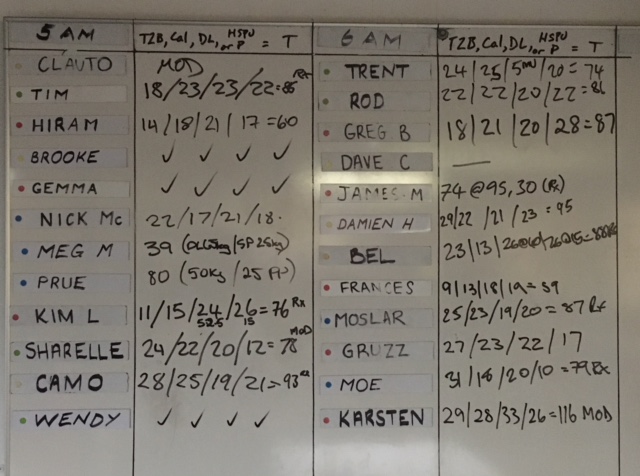 5 AM T2B, Cal, DL, HSPU or P = T
CLAUTO MOD
TIM 18/23/23/22=86 Rx
HIRAM 14/18/21/17=60
BROOKE ✓ ✓ ✓ ✓
GEMMA ✓ ✓ ✓ ✓
NICK Mc 22/17/21/18.
MEG M 39 (/SP 25kg)
PRUE 80 (50kg /25)
KIM L 11/15/24/26=76 Rx
52.5 15
SHARELLE 24/22/20/12=78 MOD
CAMO 28/25/19/21=93 Rx
WENDY ✓ ✓ ✓ ✓
6 AM T2B, Cal, DL, HSPU or P = T
TRENT 24/25/5/20=74
ROD 22/22/20/22=86
GREG B 18/21/20/28=87
DAVE C —
JAMES.M 74 @95, 30 (Rx)
DAMIEN H 29/22/21/23=95
BEL 23/13/26@60/26@15=88
FRANCES 9/13/18/19=59
MOSLAR 25/23/19/20=87 Rx
GRUZZ 27/23/22/17
MOE 31/18/20/10=79 Rx
KARSTEN 29/28/33/26=116 MOD